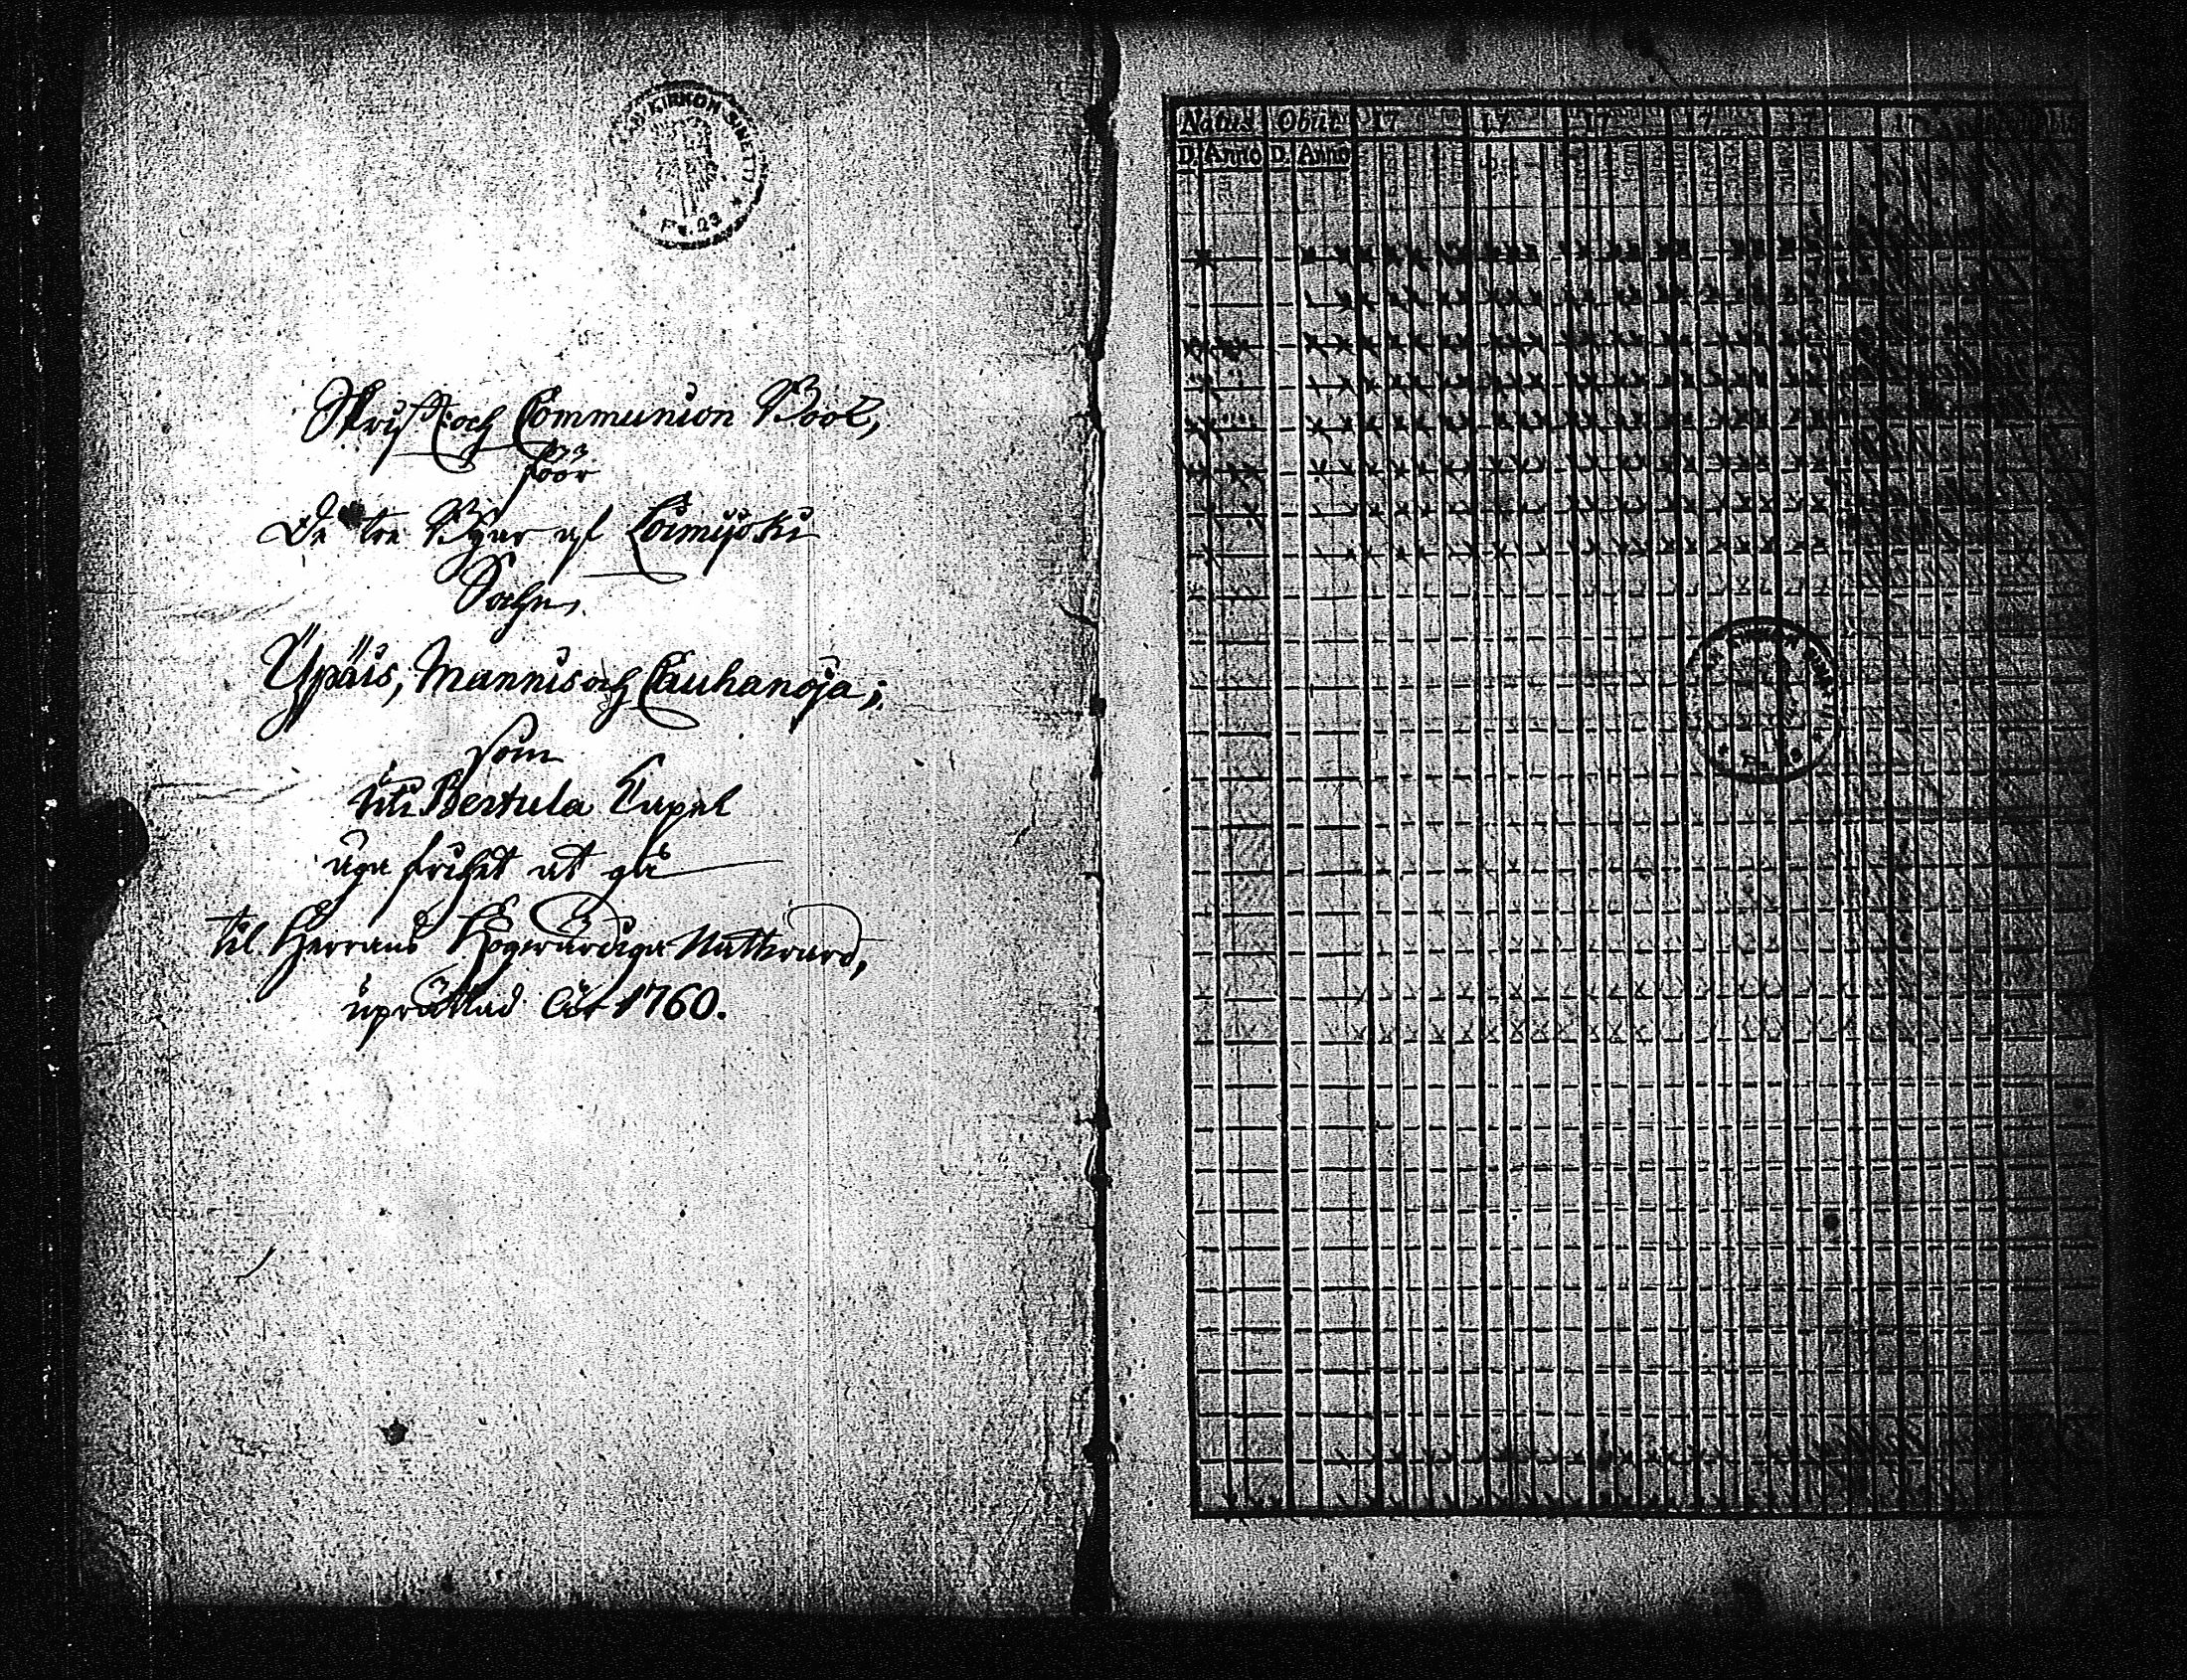 KIRKON SINETTI
Skrift och Communion Book,
föör
De tre Byar af Loimijoki
Sokn,
Ypäis, Mannis och Cauhanoja;
som
uti Bertula Capel
äga frihet at gå
til Herrans Högwärdiga Nattward,
uprättad Åhr 1760.
Natus Obiit 17 17 17 17 17 17
D. Anno D. Anno